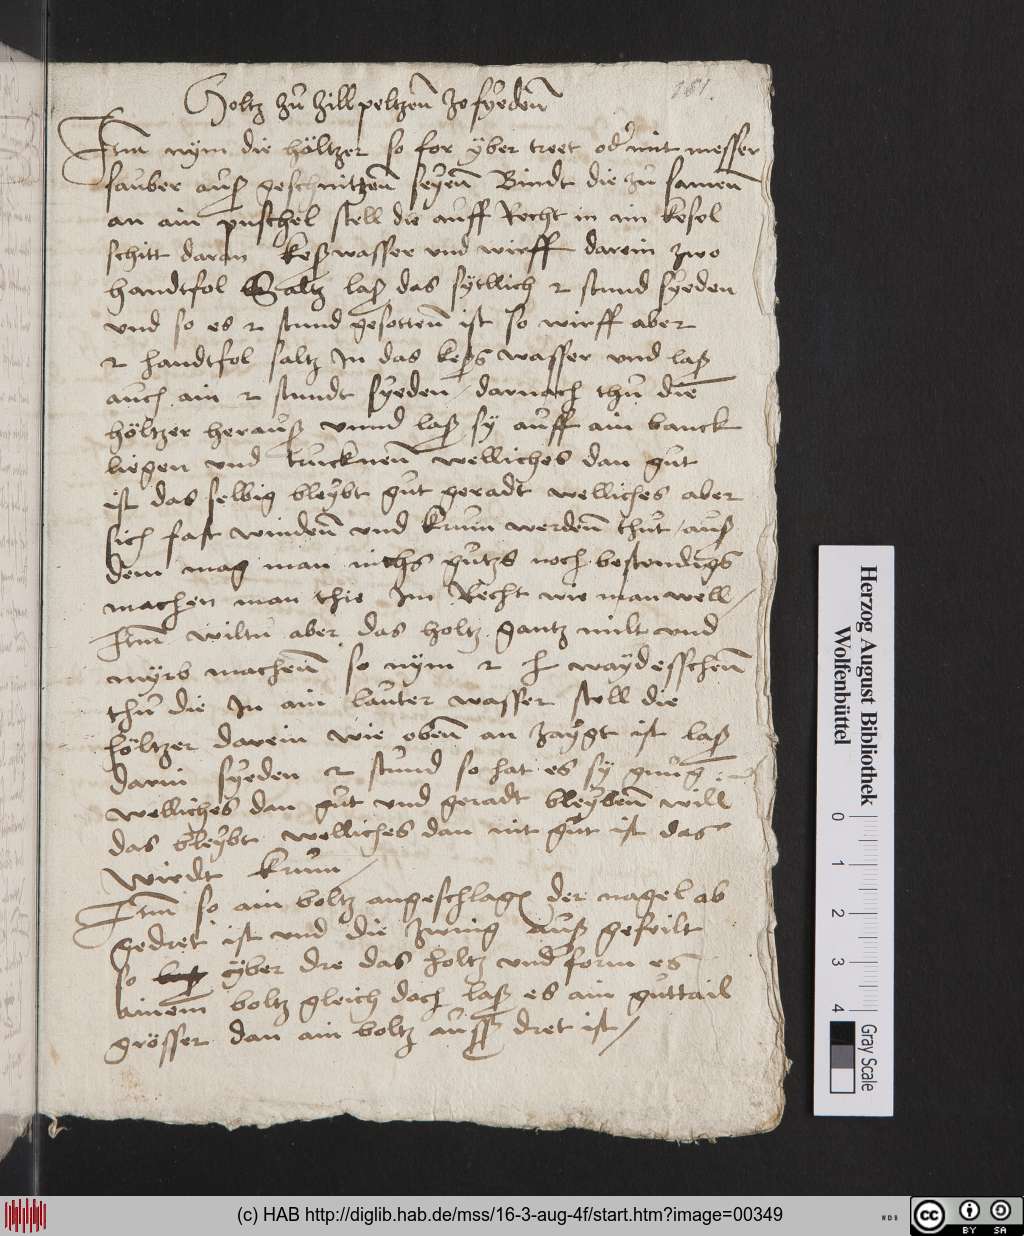 181.
Holtz zu zill peltzen zo syeden
Itm nym die höltzer so for yber treet oder mit messer
sauber auß geschnitzen seyen Bindt die zu samen
an ain puschel stell die auff Recht in ain kesel
schitt daran keßwasser und wirff darein zwo
handtfol Saltz laß das sytllich 2 stund syeden
und so es 2 stund gesotten ist so wirff aber
2 handtfol saltz In das keßwasser und laß
auch ain 2 stundt syeden / darnach thu die
höltzer herauß unnd laß sy auff ain banck
liegen und trucknen welliches dan gut
ist das selbig bleybt gut geradt welliches aber
sich fast winden und krum werden thut / auß
dem mag man nichs gutzs noch bestendigs
machen man thie Im Recht wie man well /
Itm wiltu aber das holtz gantz milt und
myrb machen so nym 2 waydesschen
thu die In ain lauter wasser stell die
höltzer darein wie oben an zaygt ist laß
darin syeden 2 stund so hat es sy gnug
welliches dan gut und geradt bleyben will
das bleybt welliches dan nit gut ist das
wirdt krum /
Itm so ain boltz angeschlagen der nagel ab
gedret ist und die zwing auß gefeilt
so yber dre das holtz und form es
ainem boltz gleich doch laß es ain guttail
grösser dan ain boltz auß dret ist /
Herzog August Bibliothek
Wolfenbüttel
0 1 2 3 4
Gray Scale
(c) HAB http://diglib.hab.de/mss/16-3-aug-4f/start.htm?image=00349
WDB
cc BY SA